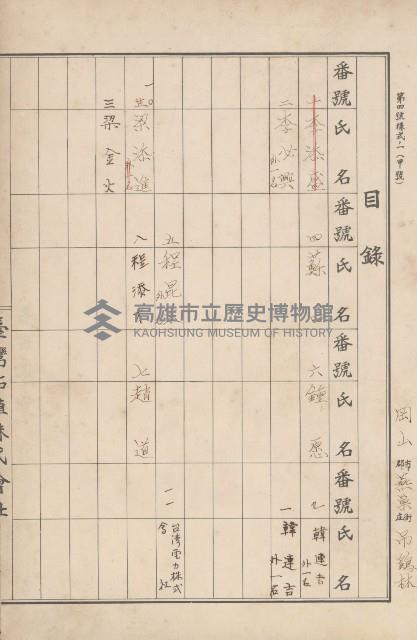 第四號樣式ノ一(甲號)
岡山 市郡 燕巢 街庄 吊鷄林
目錄
番號 氏名
番號 氏名
番號 氏名
番號 氏名
十 李添盛
四 蘇
六 鍾愿
九 韓連吉 外一名
二 李必興 外一名
一 韓連吉 外一名
五 程昆
一一 台湾電力株式会社
梁添進
八 程添
七 趙道
三 梁金火
高雄市立歷史博物館
KAOHSIUNG MUSEUM OF HISTORY
臺灣拓殖株式會社